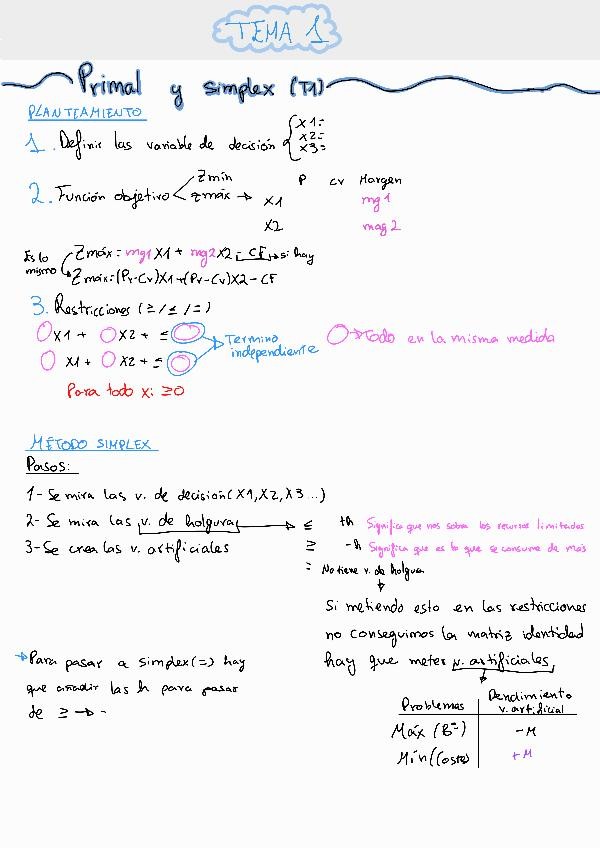 TEMA 1
Primal y simplex (T1)
PLANTEAMIENTO
1. Definir las variable de decisión { X1=
X2=
X3=
2. Función objetivo
Zmin
zmáx → X1
X2
P CV Margen
mg1
mag2
Es lo mismo
Zmáx = mg1 X1 + mg2 X2 - CF → si hay
Zmáx = (Pv-Cv)X1 + (Pv-Cv)X2 - CF
3. Restricciones (≥/≤/=)
X1 + X2 + ≤
X1 + X2 + ≤
Termino
independiente
→ Todo en la misma medida
Para todo xi ≥0
MÉTODO SIMPLEX
Pasos:
1- Se mira las v. de decisión (X1, X2, X3 ...)
2- Se mira las v. de holgura → ≤ +h Significa que nos sobra los recursos limitados
3- Se crea las v. artificiales
≥ -h Significa que es lo que se consume de más
= No tiene v. de holgua
Si metiendo esto en las restricciones
no conseguimos la matriz identidad
hay que meter v. artificiales
→ Para pasar a simplex (=) hay
que añadir las h para pasar
de ≥ → -
Problemas Rendimiento v. artificial
Máx (Bº=) -M
Mín (Coste) +M